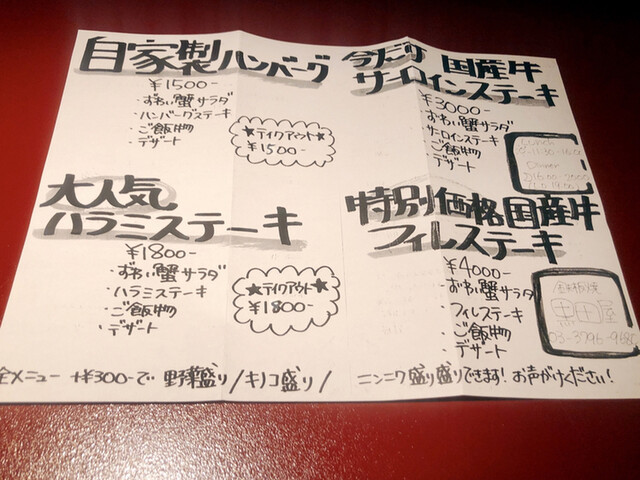 自家製ハンバーグ
¥1500-
・ずわい蟹サラダ
・ハンバーグステーキ
・ご飯物
・デザート
★テイクアウト★
¥1500-
今だけ 国産牛
サーロインステーキ
¥3000-
・ずわい蟹サラダ
・サーロインステーキ
・ご飯物
・デザート
Lunch
Dinner
大人気
ハラミステーキ
¥1800-
・ずわい蟹サラダ
・ハラミステーキ
・ご飯物
・デザート
★テイクアウト★
¥1800-
特別価格国産牛
フィレステーキ
¥4000-
・ずわい蟹サラダ
・フィレステーキ
・ご飯物
・デザート
鉄板焼
黒田屋
03-3796-9680
全メニュー +¥300-で 野菜盛り/キノコ盛り/ニンニク盛り盛りできます!お声がけください!